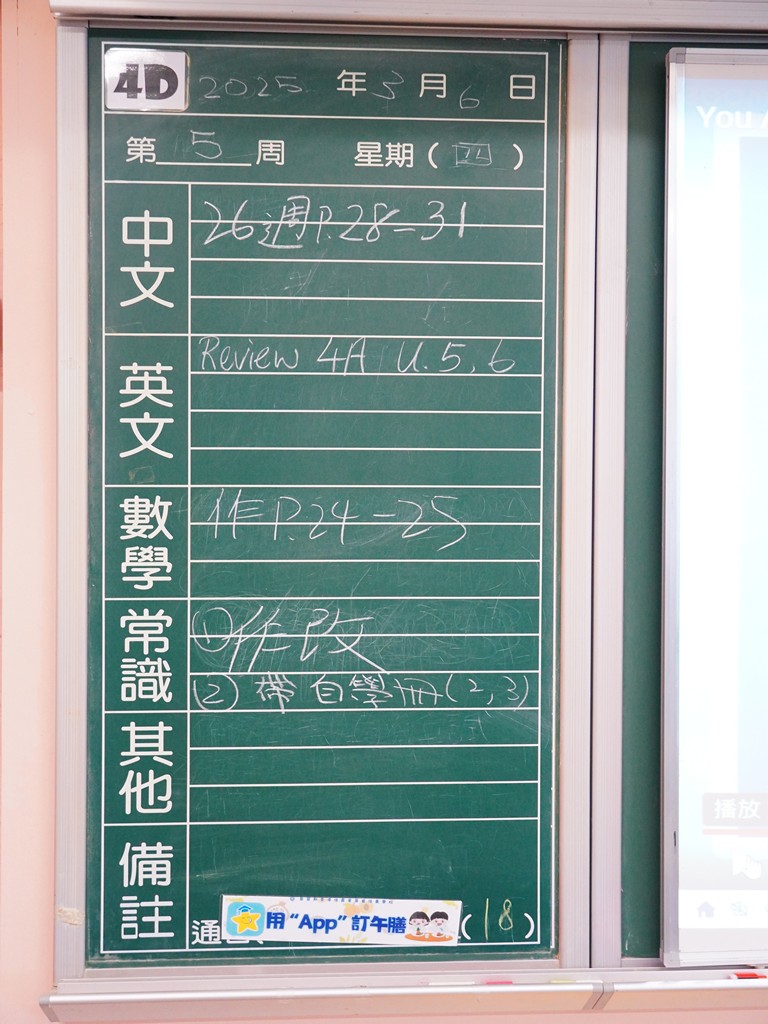 4D 2025 年 3 月 6 日
第 5 周 星期 ( 四 )
中文 26週 P.28-31
英文 Review 4A U.5, 6
數學 作 P.24-25
常識 ① 作改
② 帶自學冊(2,3)
其他
備註
通
用 “App” 訂午膳
(18)
You
播放